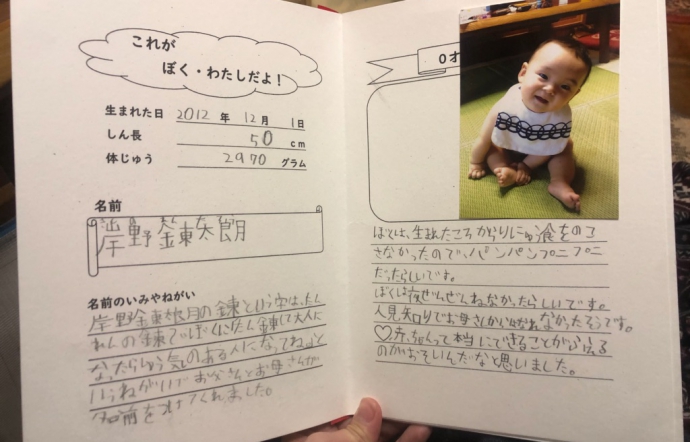 これが
ぼく・わたしだよ！
生まれた日 2012 年 12 月 1 日
しん長 50 cm
体じゅう 2970 グラム
名前
岸野 錬太朗
名前のいみやねがい
岸野錬太朗の錬という字は、たん
れんの錬でぼくにたん錬して大人に
なったらゆう気のある人になってねと
いうねがいでお父さんとお母さんが
名前をつけてくれました。
0オ
ぼくは、生まれたころからりにゅう食をのこ
さなかったので、パンパンプニプニ
だったらしいです。
ぼくは夜ぜんぜんねなかったらしいです。
人見知りでお母さんからはなれなかったそうです。
♡赤ちゃんって本当にできることがふえる
のがおそいんだなと思いました。